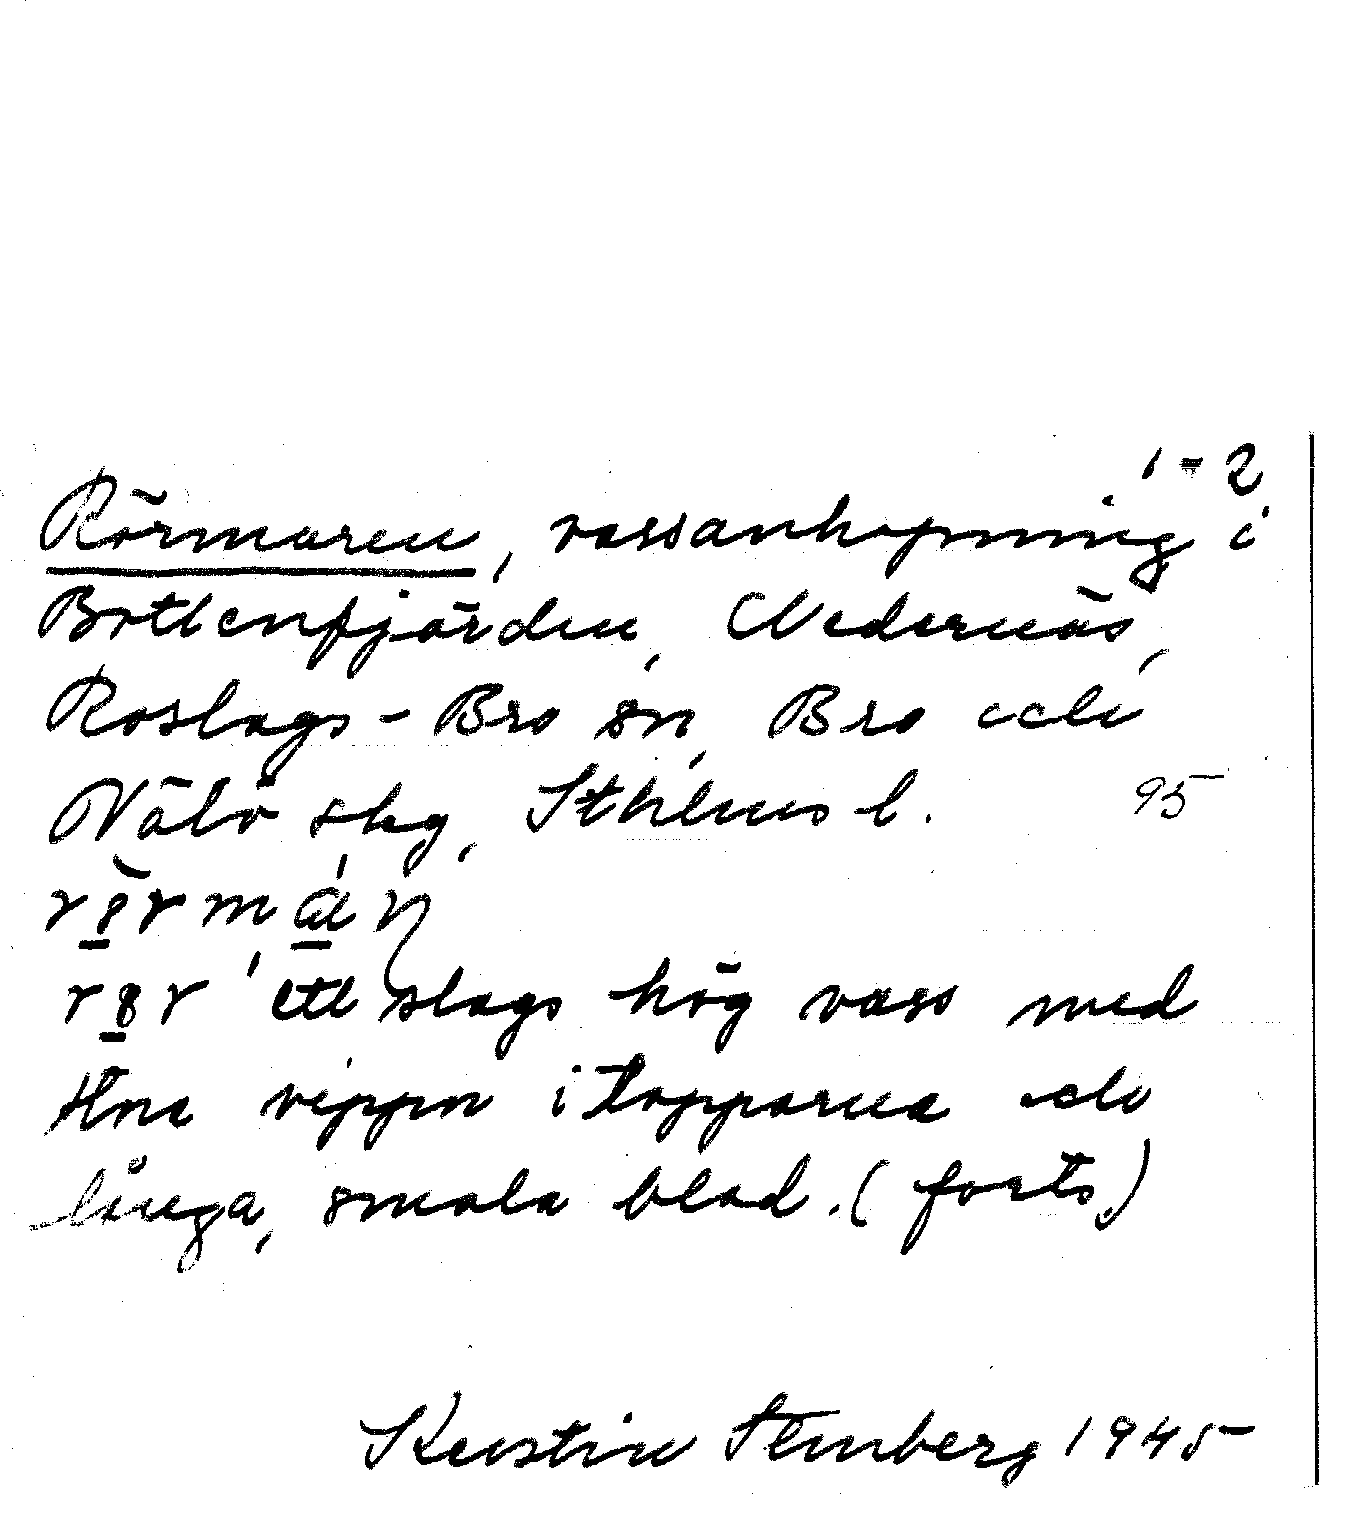 1-2
Rörmaren, vassanhopning i
Bottenfjärden, Nedernäs,
Roslags-Bro sn, Bro och
Vätö skg, Sthlms l. 95
'ett slags hög vass med
vippor i topparna och
långa, smala blad. (forts)
Kerstin Stenberg 1945